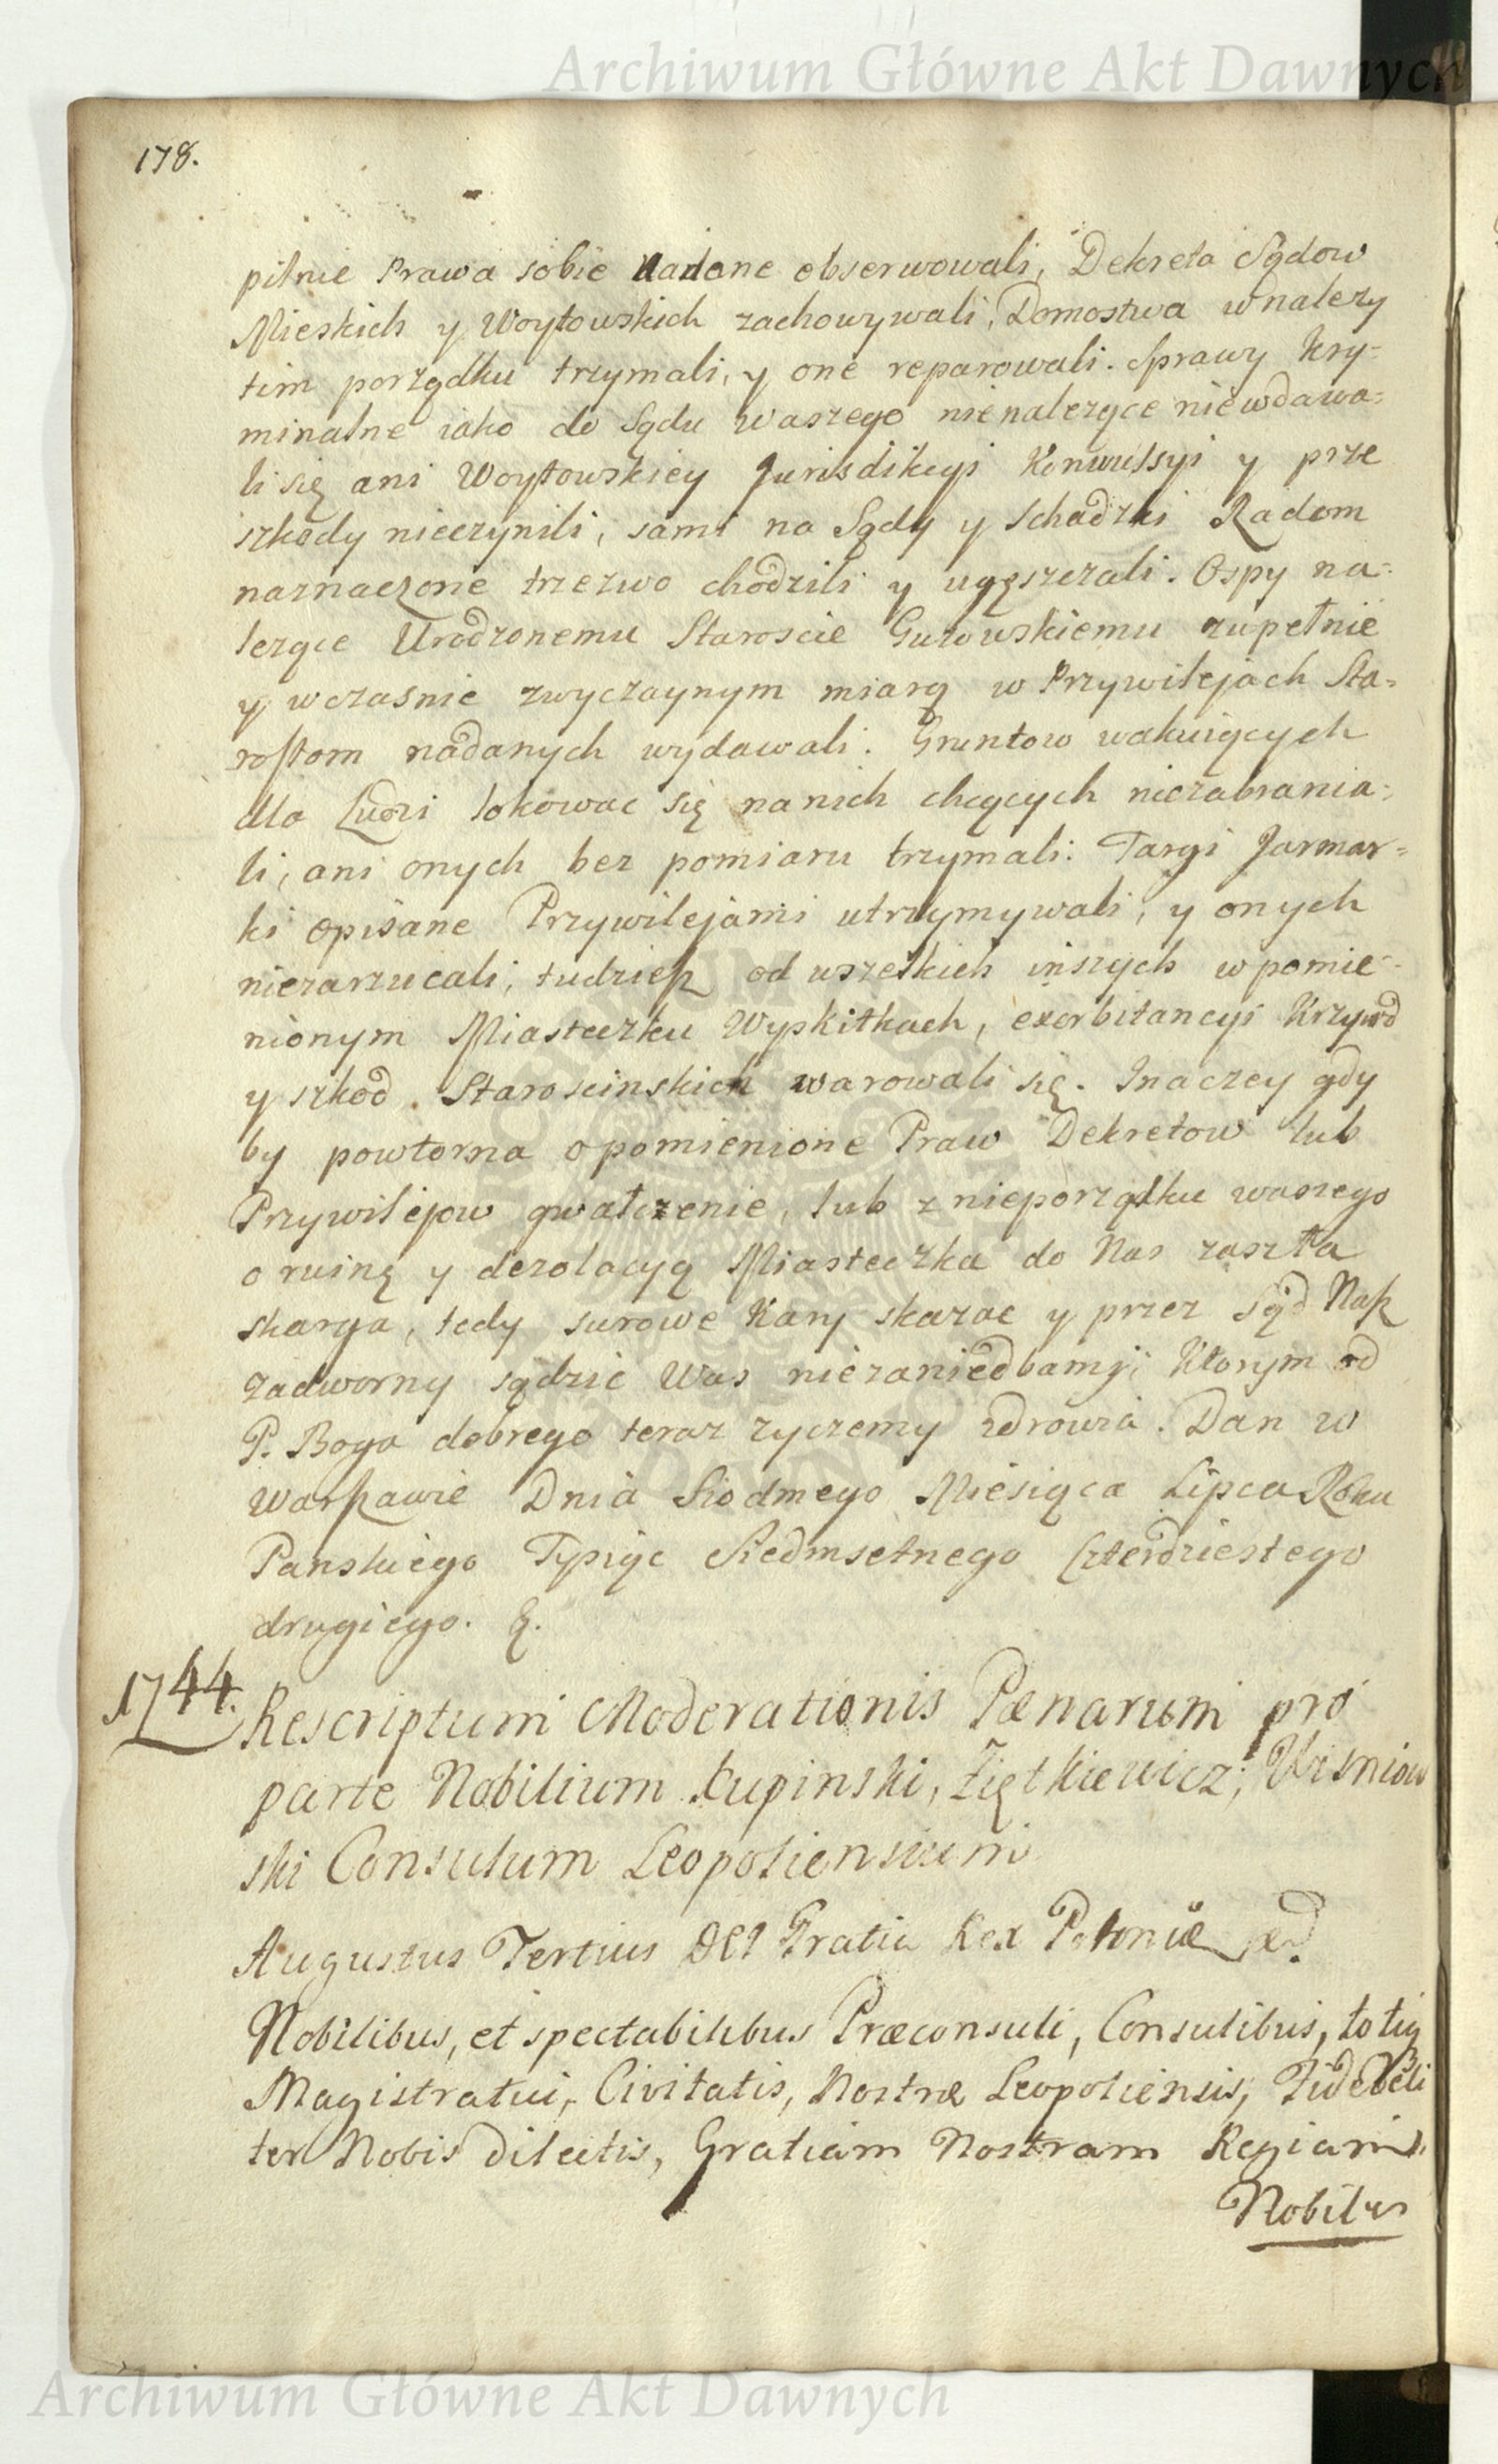 Archiwum Główne Akt Dawnych
178.
pilnie Prawa sobie nadane obserwowali, Dekreta Sądow
Mieskich y Woytowskich zachowywali, Domostwa w należy
tim porządku trzymali, y one reparowali. Sprawy Kry-
minalne iako do Sądu Waszego nienależące niewdawa-
li się ani Woytowskiey Jurisdikcyi Konwulssyi y prze
szkody nieczynili, sami na Sądy y Schadzki Radom
naznaczone trzezwo chodzili y uczęszczali. Ospy na-
lezące Urodzonemu Staroscie Guzowskiemu zupełnie
y wczasnie zwyczaynym miarą w Przywilejach Sta-
rostom nadanych wydawali. Gruntow wakuiących
dla Ludzi lokowac się na nich chcących niezabrania-
li, ani onych bez pomiaru trzymali. Targi Jarmar-
ki opisane Przywilejami utrzymywali, y onych
niezarzucali, tudzież od wszelkich inszych wpomie-
nionym Miasteczku Wyskitkach, exorbitancyi Krzywd
y szkod Staroscinskich warowali się. Inaczey gdy
by powtorna o pomienione Praw Dekretow lub
Przywilejow gwałczenie, lub z nieporządku waszego
o ruinę y dezolacyą Miasteczka do Nas zaszła
skarga, tedy surowe Kary skazac y przez Sąd Nasz
zadworny sądzic Was niezaniedbamy; Ktorym od
P. Boga dobrego teraz zyczemy zdrowia. Dan w
Warszawie Dnia Siodmego Miesiąca Lipca Roku
Panskiego Tysiąc Siedmsetnego Czterdziestego
drugiego. &.
1744.
Rescriptum Moderationis Pœnarum pro
parte Nobilium Łupinski, Ziętkiewicz, Wisniow
ski Consulum Leopoliensium
Augustus Tertius DEI Gratia Rex Poloniæ &
Nobilibus, et spectabilibus Præconsuli, Consulibus, totiq
Magistratui, Civitatis, Nostræ Leopoliensis, Fideli
ter Nobis Dilectis, Gratiam Nostram Regiam.
Nobiles
Archiwum Główne Akt Dawnych